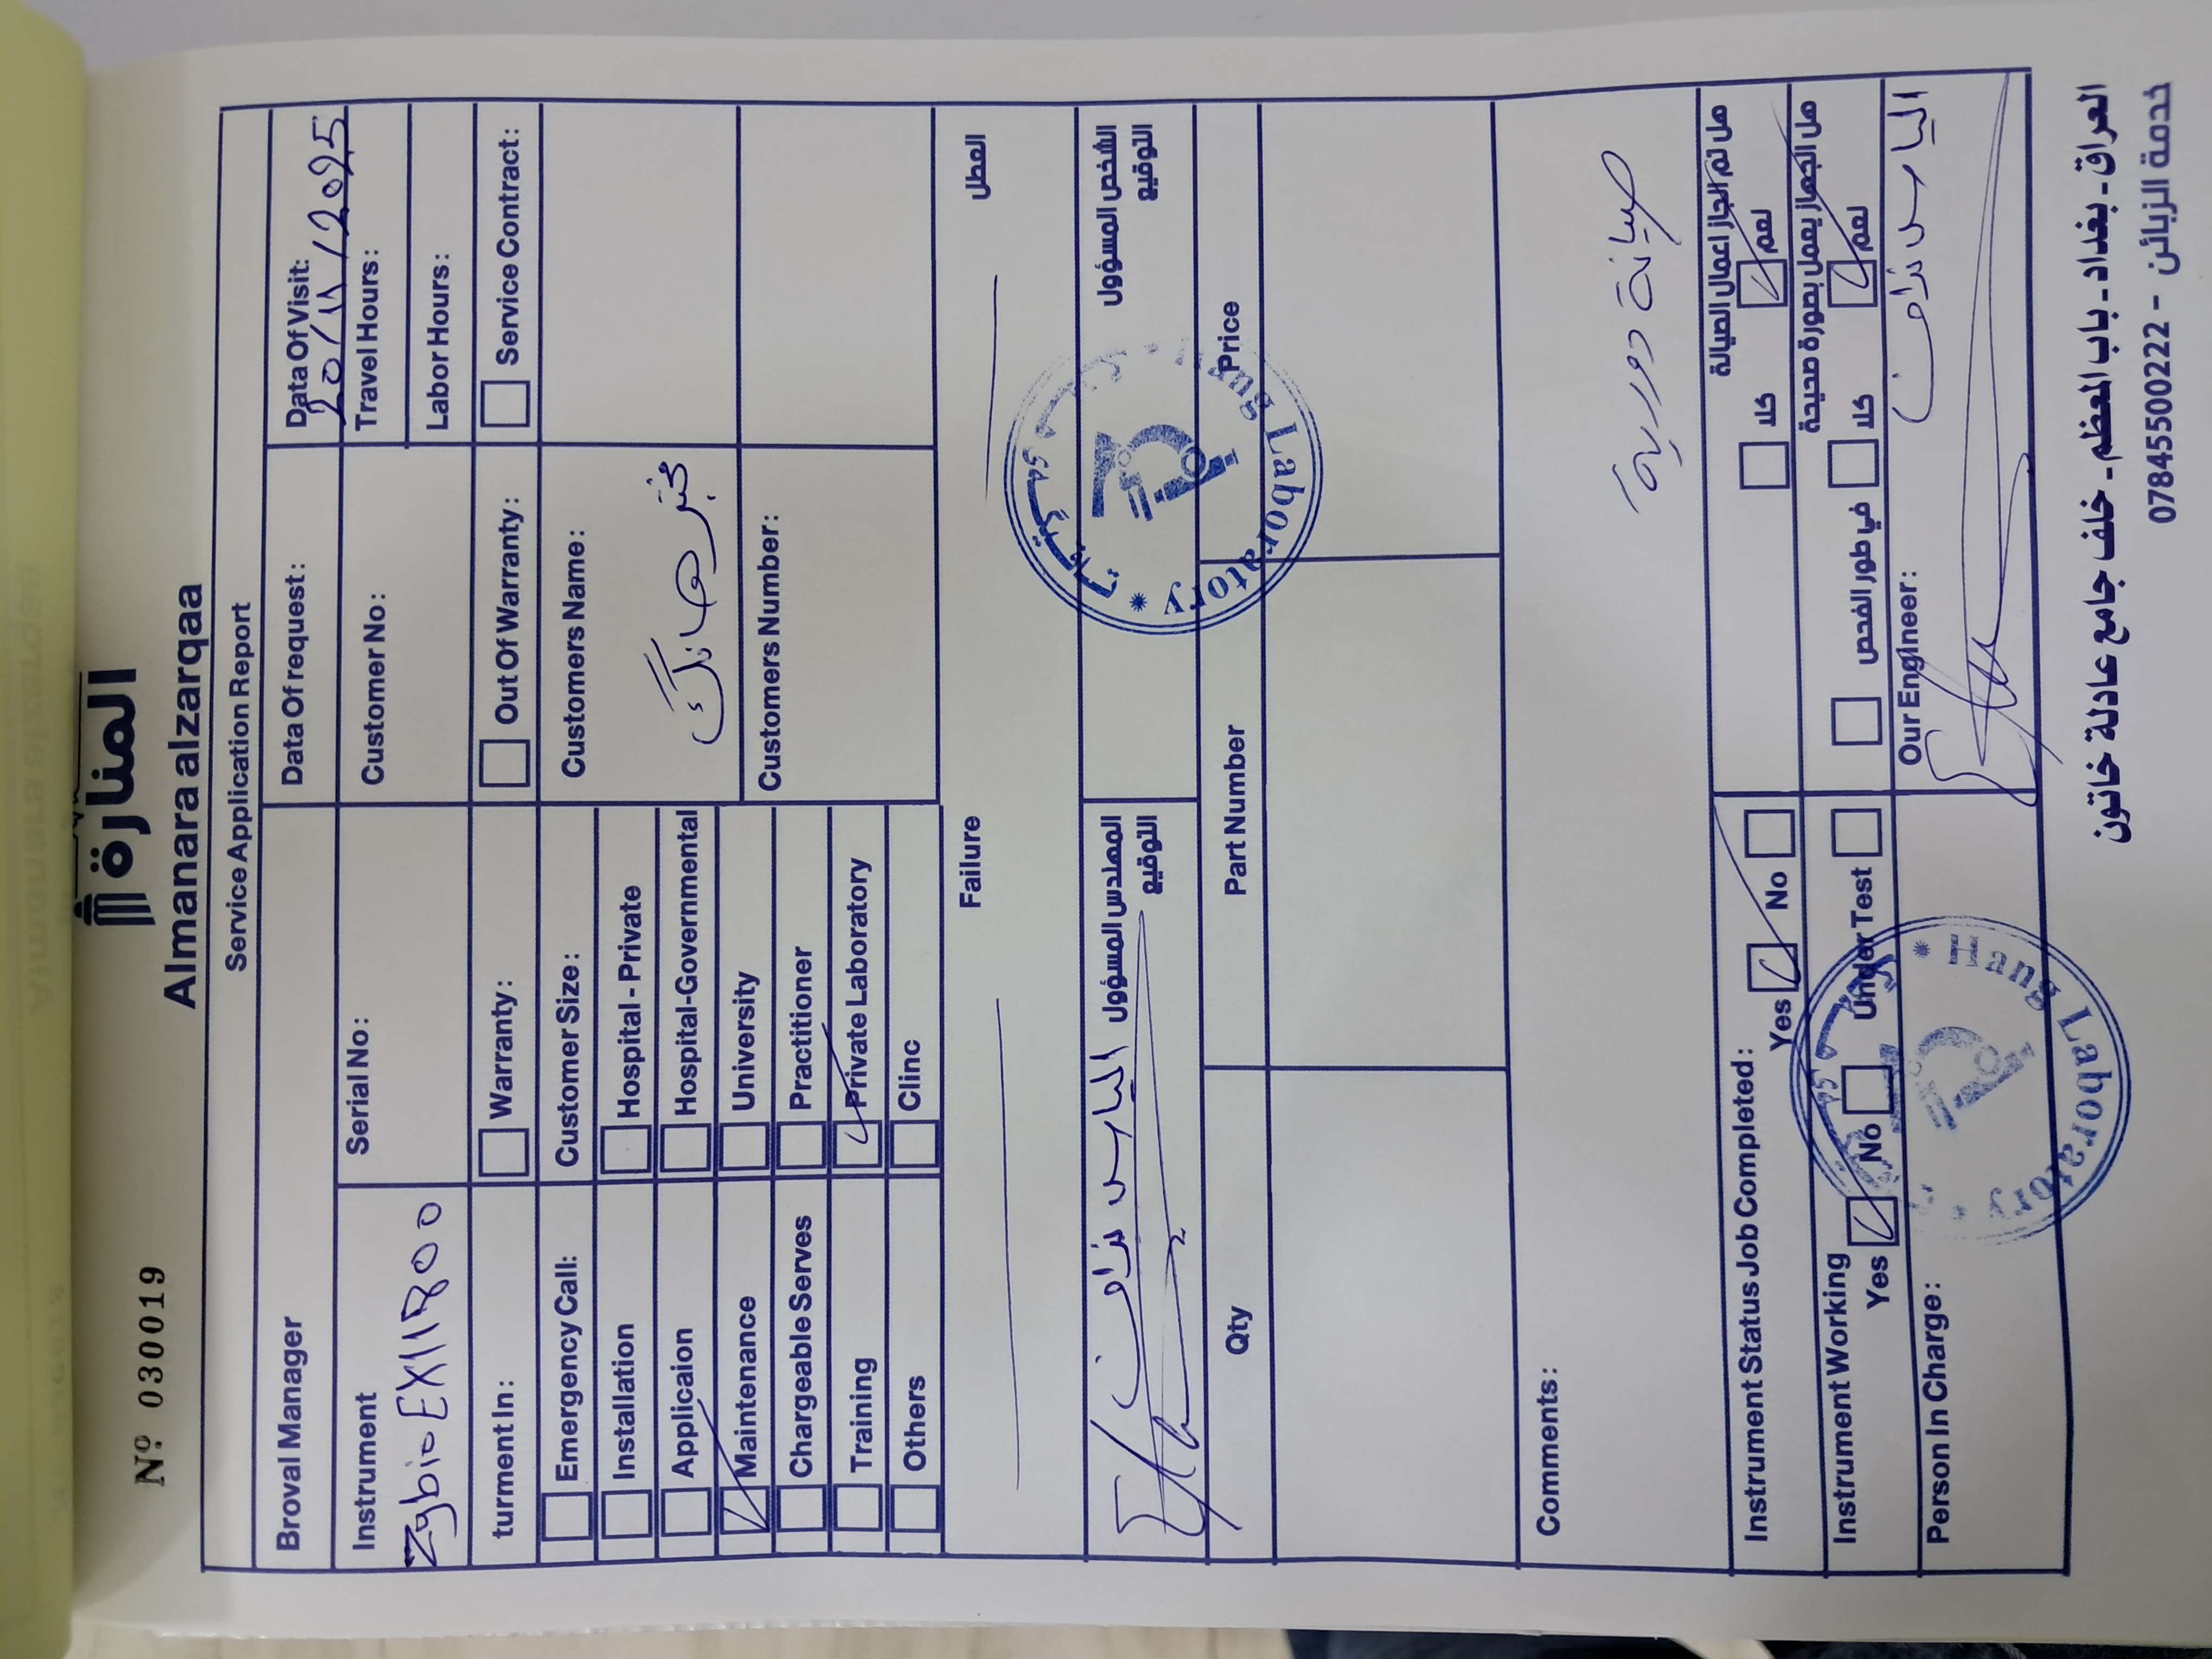 Nº 030019
المنارة
Almanara alzarqaa
Service Application Report
Broval Manager
Data Of request:
Data Of Visit:
20/11/2025
Instrument
Zybio EXI1800
Serial No:
Customer No:
Travel Hours:
Labor Hours:
turment In:
Warranty:
Out Of Warranty:
Service Contract:
Emergency Call:
Customer Size:
Customers Name:
مختبر هانگ
Installation
Hospital - Private
Applicaion
Hospital-Governmental
Maintenance
University
Customers Number:
Chargeable Serves
Practitioner
Training
Private Laboratory
Others
Clinc
Failure
العطل
المهندس المسؤول
التوقيع
الشخص المسؤول
التوقيع
Hang Laboratory
Qty
Part Number
Price
Comments:
صيانة دورية
Instrument Status Job Completed:
Yes
No
هل تم انجاز اعمال الصيانة
كلا
نعم
Instrument Working
Yes
No
Under Test
هل الجهاز يعمل بصورة صحيحة
في طور الفحص
كلا
نعم
Person In Charge:
Our Engineer:
Hang Laboratory
خدمة الزبائن - 07845500222